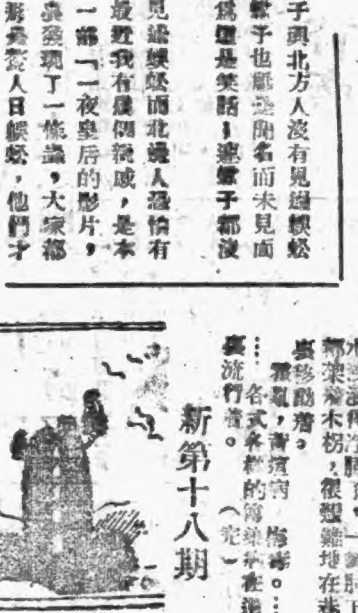 子與北方人沒有見過蜈蚣
蠍子也祇是聞名而未見面
爲還是笑話！連蠍子都沒
見過蜈蚣而北邊人恐怕有
最近我有個親戚，是本
一部「一夜皇后的影片，
發現了一條蟲，大家都
人曰蜈蚣，他們才
都架着木柺，很艱難地在巷
裏移動着。
霍亂，黃疸病，梅毒。…
…各式各樣的傳染病在這
裏流行着。（完）
新第十八期